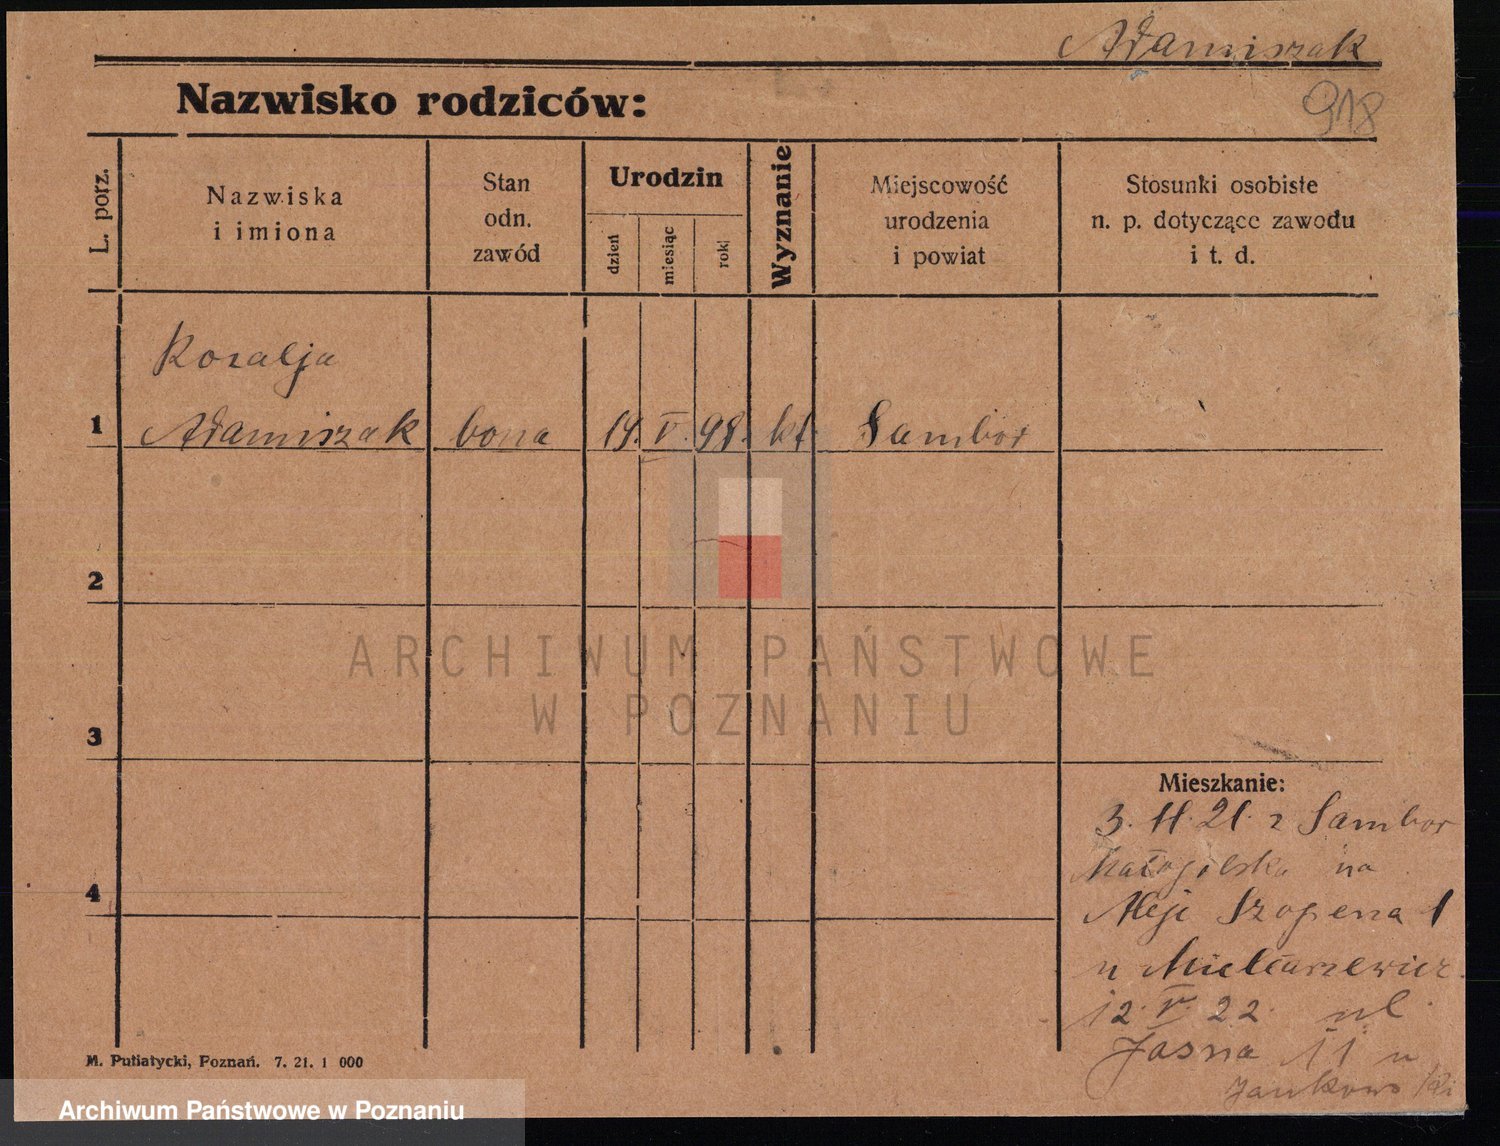 Adamiszak
918
Nazwisko rodziców:
L. porz.
Nazwiska
i imiona
Stan
odn.
zawód
Urodzin
dzień
miesiąc
rok
Wyznanie
Miejscowość
urodzenia
i powiat
Stosunki osobiste
n. p. dotyczące zawodu
i t. d.
Rozalja
1 Adamiszak bona 14. V. 98. kt. Sambor
2
3
4
ARCHIWUM PAŃSTWOWE
W POZNANIU
Mieszkanie:
3. 11. 21. z Sambor
Małopolska na
Aleje Szopena 1
u
12. V. 22. ul.
Jasna 11 u
M. Putiatycki, Poznań. 7. 21. 1 000
Archiwum Państwowe w Poznaniu